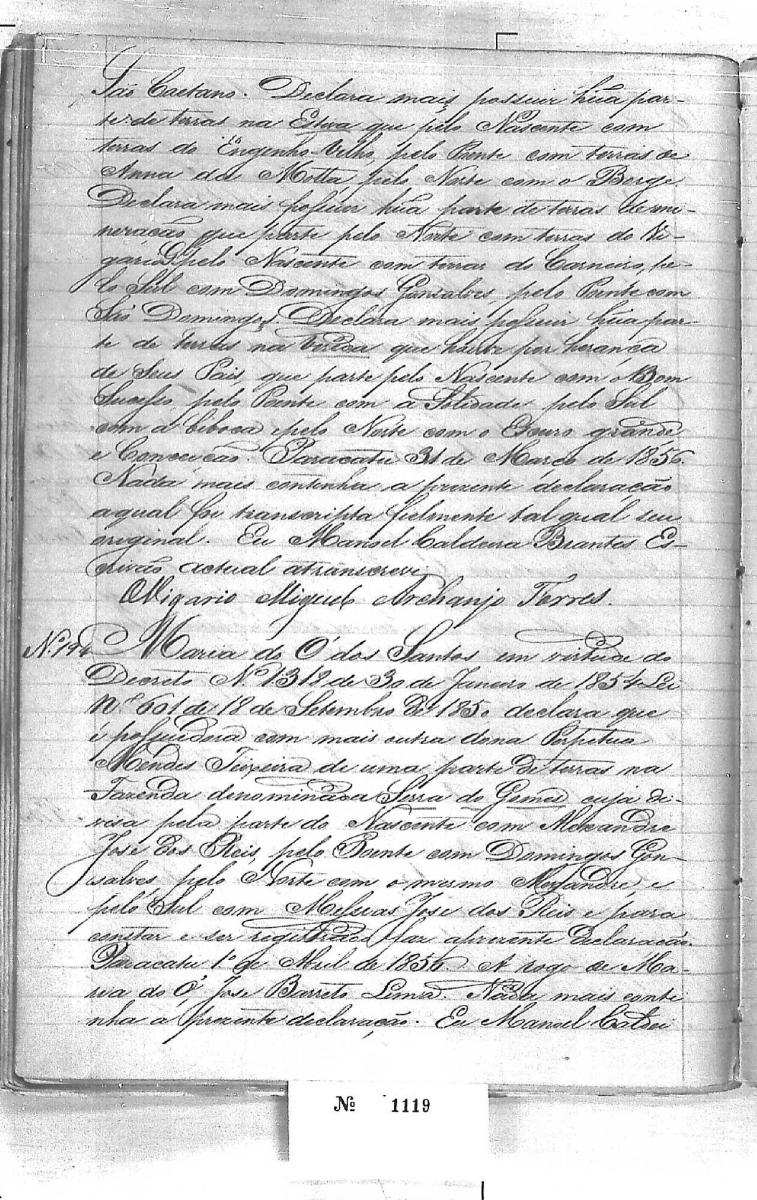 São Caetano. Declara mais possuir hũa par-
te de terras na Estiva que pelo Nascente com
terras do Engenho-Velho, pelo Poente com terras de
Anna da Motta, pelo Norte com o Berge.
Declara mais possuir hũa parte de terras de mi-
neração que parte pelo Norte com terras do Vi-
gario, pelo Nascente com terras do Carneiro, pe-
lo Sul com Domingos Gonsalves, pelo Poente com
São Domingos. Declara mais possuir hũa par-
te de terras na que houve por herança
de seus Pais, que parte pelo Nascente com o Bom
Sucesso pelo Poente com a Solidade pelo Sul
com a biboca, pelo Norte com o Ouro grande
e Conceicão. Paracatu 31 de Março de 1856.
Nada mais continha a prezente declaração
a qual foi transcripta fielmente tal qual seu
original. Eu Manoel Caldeira Brantes Es-
crivão actual a transcrevi
O Vigario Miguel Archanjo Torres.
Nº 196 Maria do O' dos Santos em virtude do
Decreto Nº 1318 de 30 de Janeiro de 1854 Lei
Nº 601 de 18 de Setembro de 1850 declara que
é possuidora com mais outra dona Perpetua
Mendes Teixeira de uma parte de terras na
Fazenda denominada Serra do Gomes cuja di-
visa pela parte do Nascente com Alexandre
José dos Reis, pelo Poente com Domingos Gon-
salves, pelo Norte com o mesmo Alexandre e
pelo Sul com Messias José dos Reis e para
constar e ser registrado faz a prezente Declaração.
Paracatu 1º de Abril de 1856. A rogo de Ma-
ria do O' José Barreto Lima. Nada mais conti
nha a prezente declaração. Eu Manoel Caldei
Nº 1119